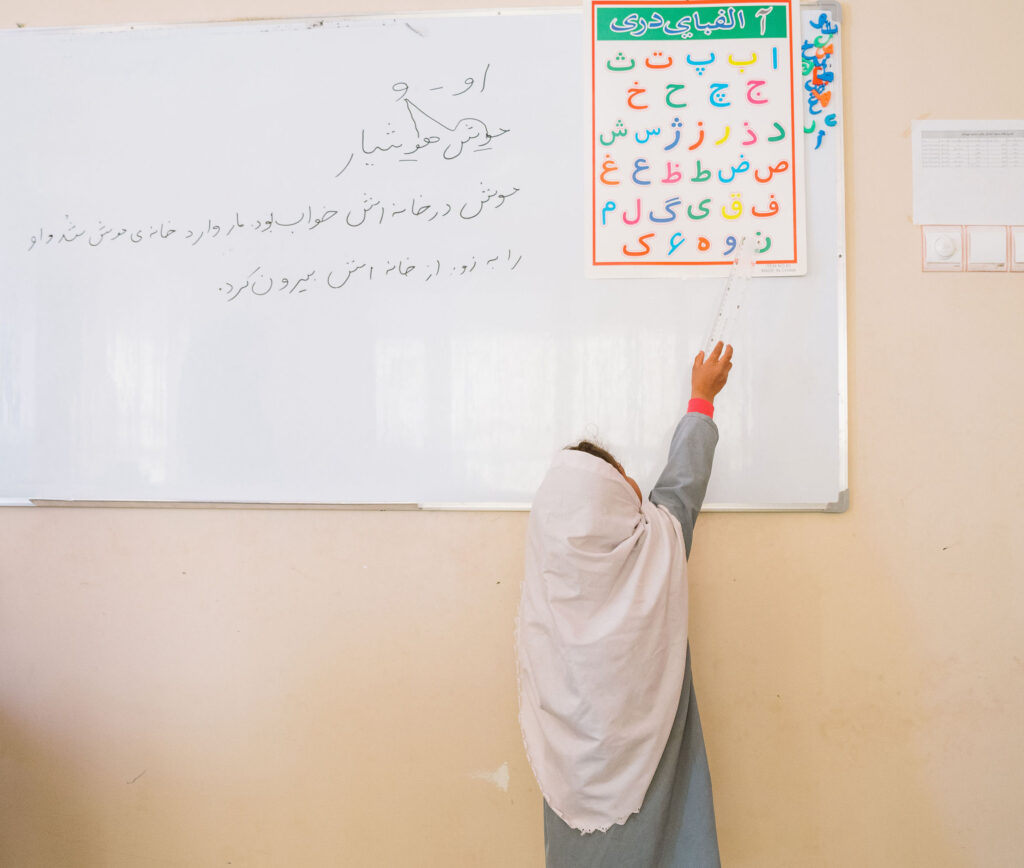 آ الفبای دری
ا ب پ ت ث
ج چ ح خ
د ذ ر ز ژ س ش
ص ض ط ظ ع غ
ف ق ی گ ل م
ن و ه ۶ ک
MADE IN CHINA
او - و
موش هوشیار
موش در خانه اش خواب بود. مار وارد خانه ی موش شد و او
را به زور از خانه اش بیرون کرد.